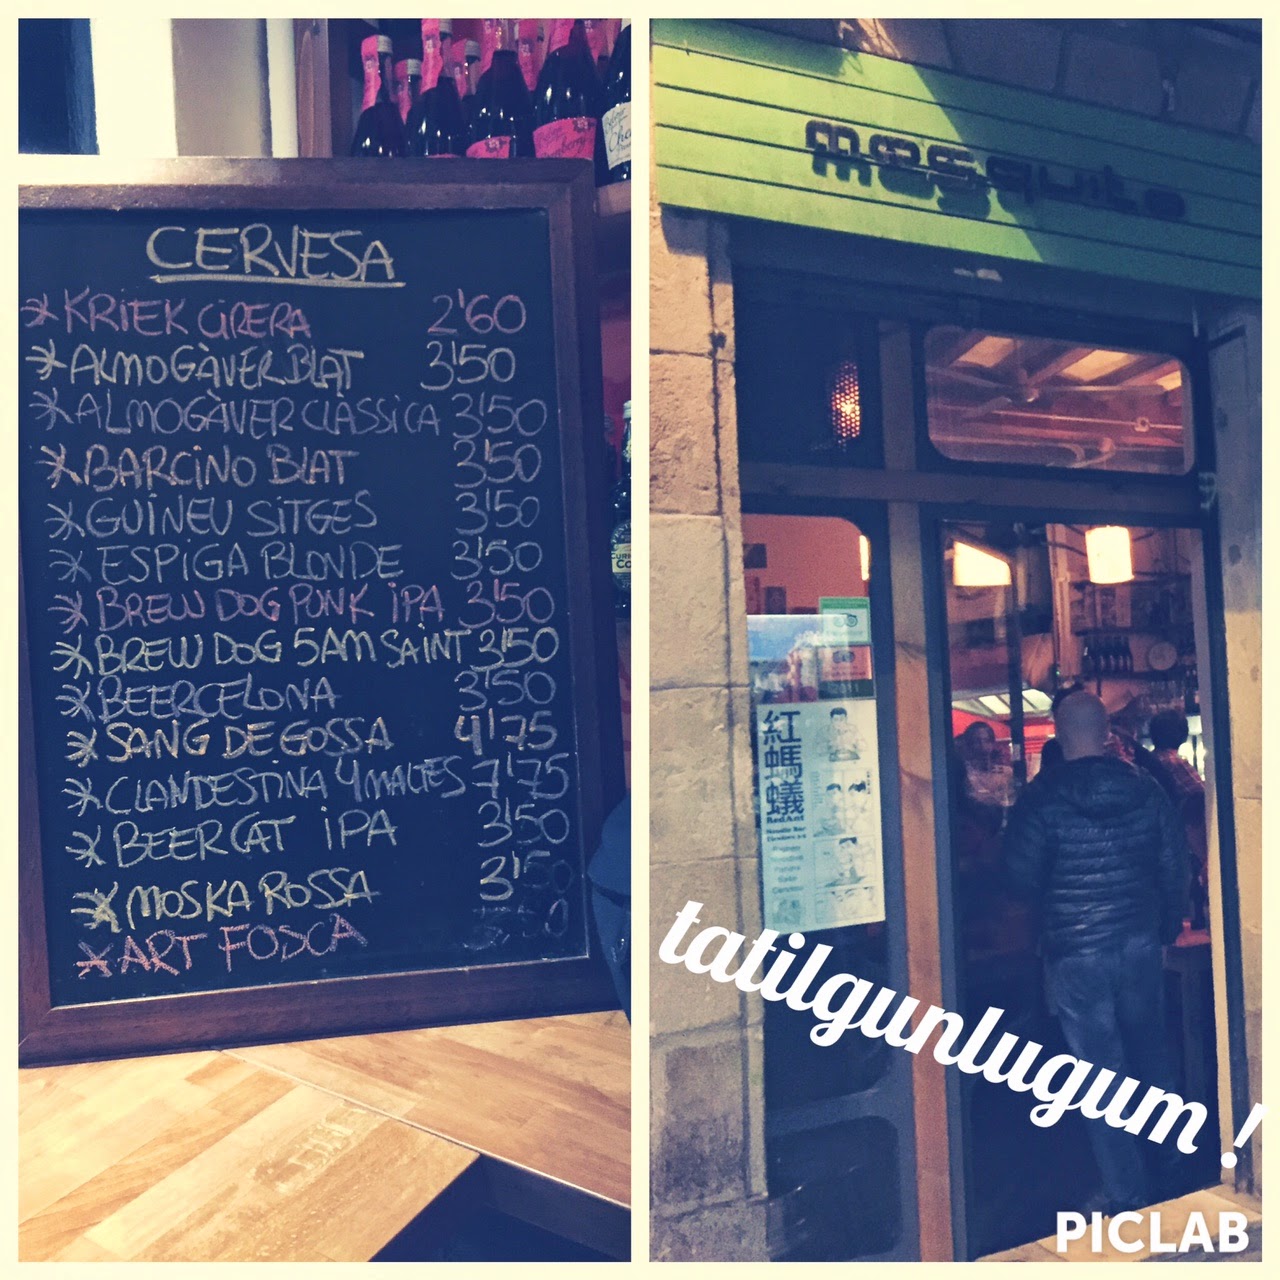 CERVESA
* KRIEK CIRERA 2'60
* ALMOGÀVER BLAT 3'50
* ALMOGÀVER CLÀSSICA 3'50
* BARCINO BLAT 3'50
* GUINEU SITGES 3'50
* ESPIGA BLONDE 3'50
* BREW DOG PUNK IPA 3'50
* BREW DOG 5AM SAINT 3'50
* BEERCELONA 3'50
* SANG DE GOSSA 4'75
* CLANDESTINA 4 MALTES 7'75
* BEERCAT IPA 3'50
* MOSKA ROSSA 3'50
* ART FOSCA
mosquito
紅螞蟻
Red Ant
Noodle Bar
tatilgunlugum !
PICLAB